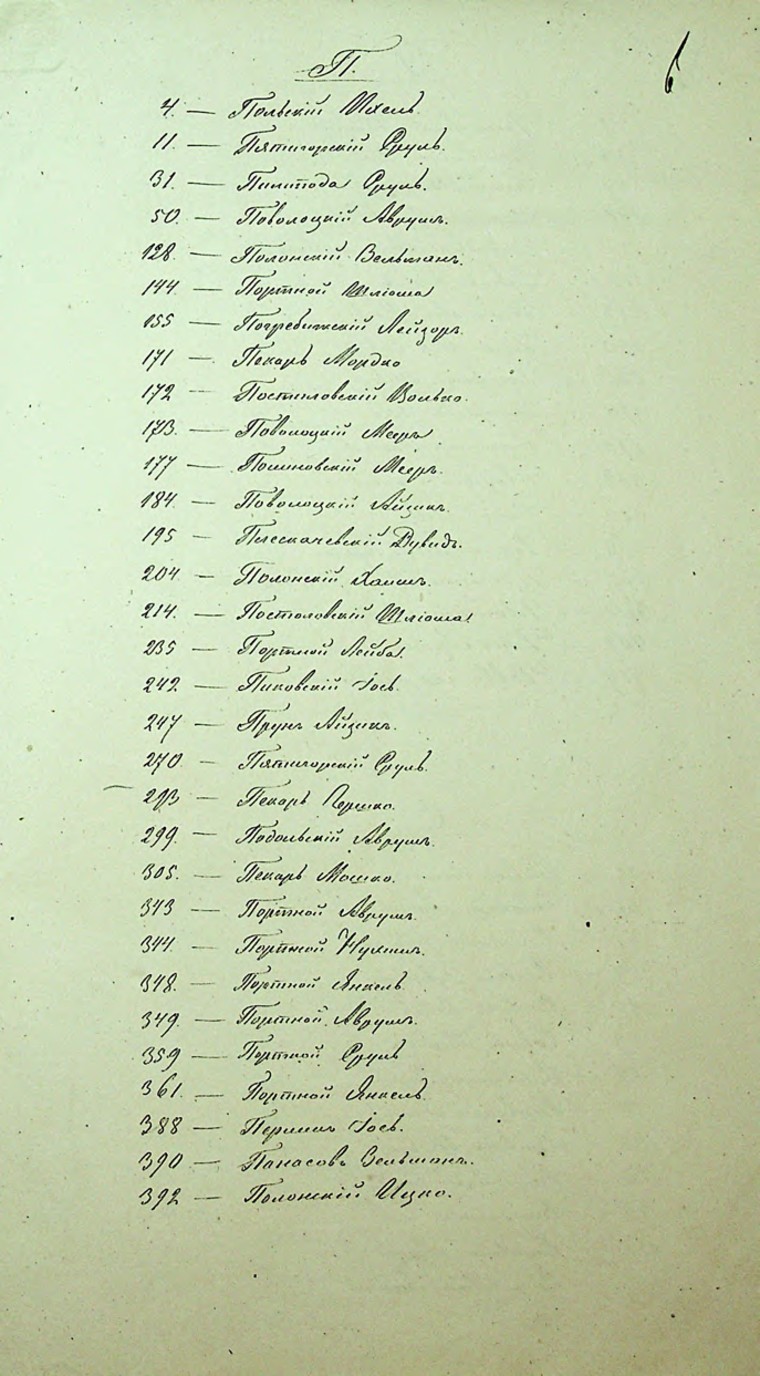 П.
6
4. — Польскій Ихель.
11. — Пятигорскій Сруль.
31. — Пилипода Сруль.
50. — Поволоцкій Аврумъ.
128. — Полонскій Вельманъ.
144 — Портной Шліома
155 — Погребижскій Лейзоръ
171 — Пекарь Мордко
172 — Постиловскій Волько.
173. — Поволоцкій Мееръ
177 — Мееръ.
184. — Поволоцкій Айзикъ.
195 — Плескачевскій Дувидъ.
204 — Полонскій Хаимъ.
214. — Постоловскій Шліома
235 — Портной Лейба.
242. — Пиковскій Іось.
247 — Прунъ Айзикъ.
270. — Пятигорскій Сруль.
293 — Пекарь Гершко.
299. — Подольскій Аврумъ.
305. — Пекарь Мошко.
343 — Портной Аврумъ.
344. — Портной Нухимъ.
348. — Портной Янкель
349. — Портной Аврумъ.
359 — Портной Сруль
361 — Портной Янкель.
388 — Іось.
390 — Панасовъ Вельманъ.
392 — Полонскій Ицко.